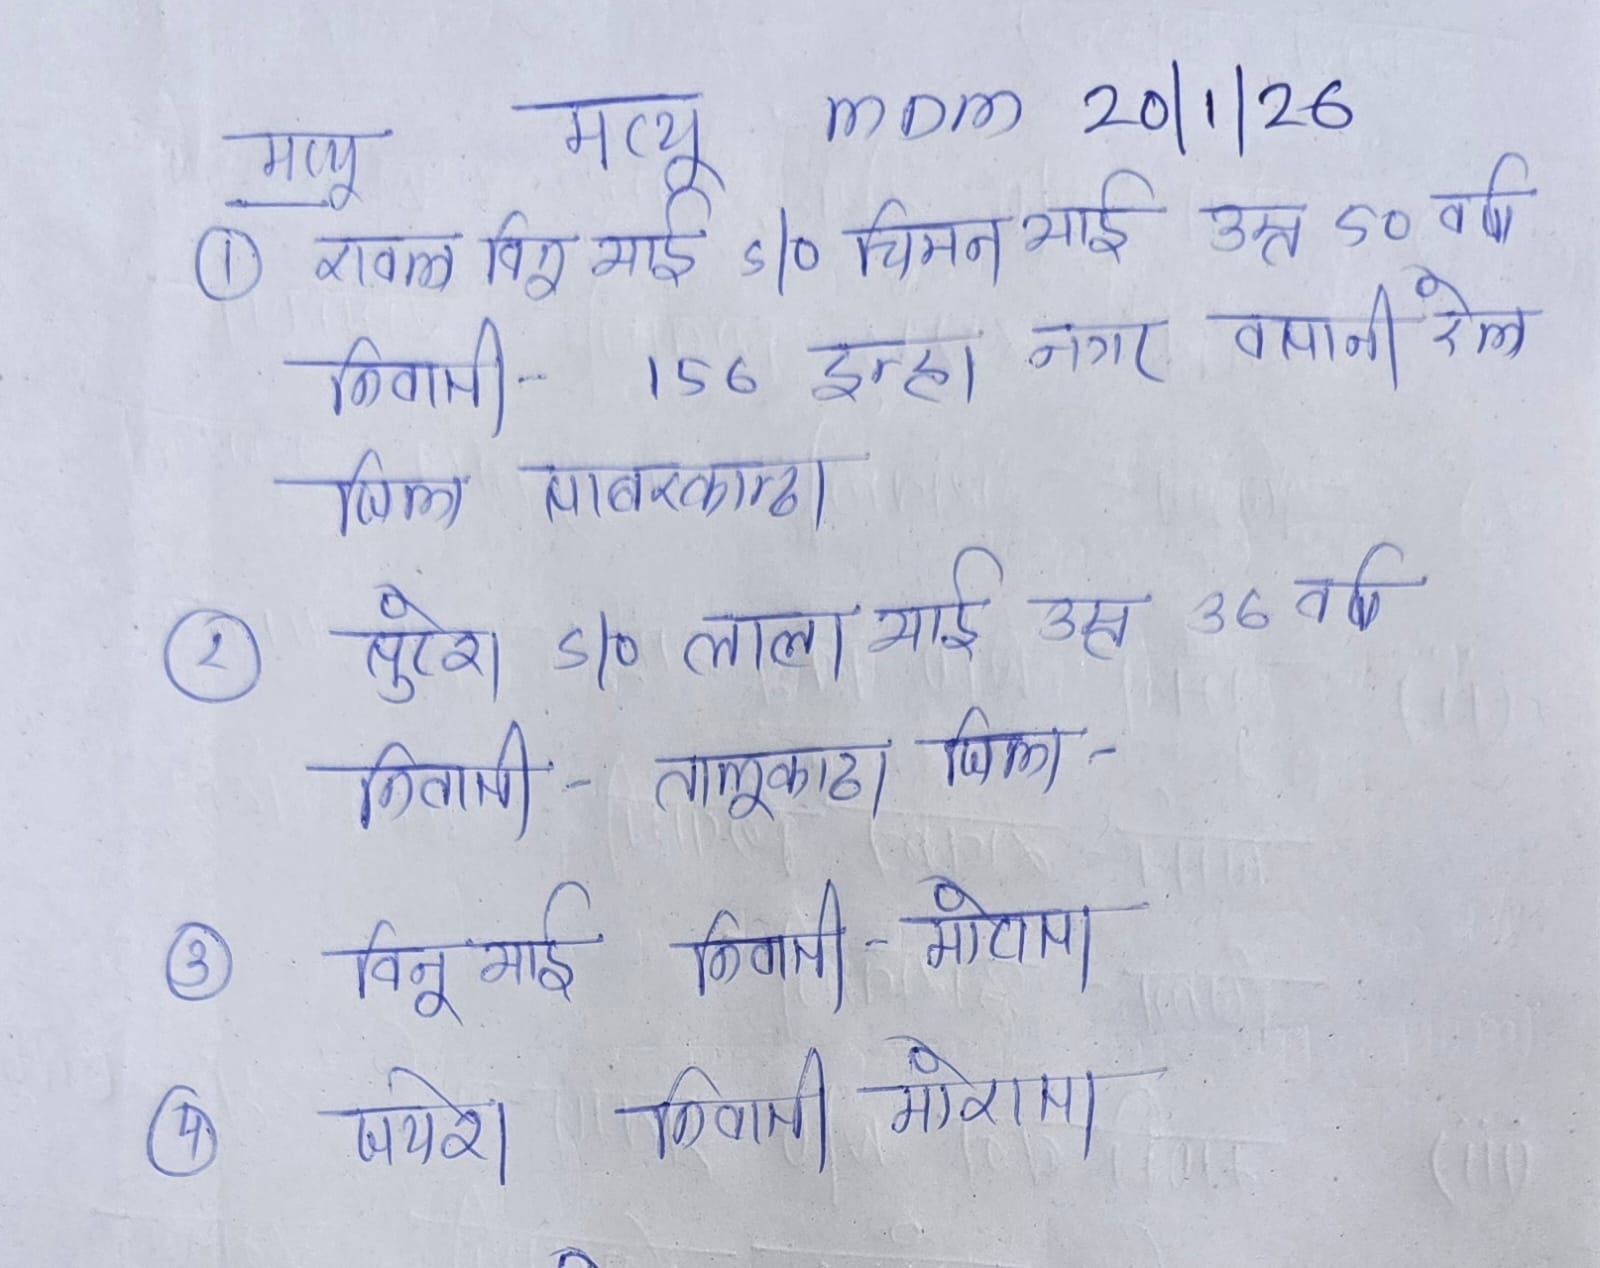 मृत्यु MDM 20/1/26
मृत्यु
① रावल विनु भाई S/O चिमन भाई उम्र 50 वर्ष
निवासी - 156 नगर
जिला साबरकाठा
② सुरेश S/O लाला भाई उम्र 36 वर्ष
निवासी - जिला -
③ विनू भाई निवासी - मोडासा
④ जयेश निवासी